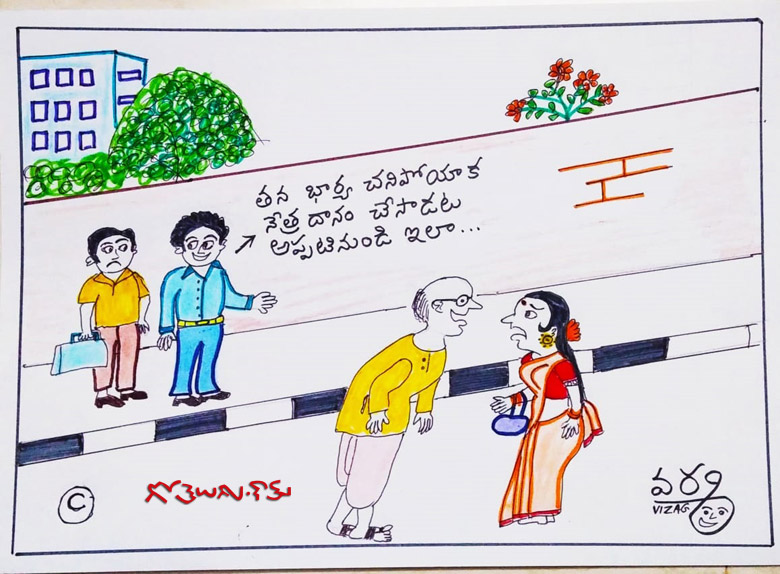 తన భార్య చనిపోయాక
నేత్రదానం చేసాడటు
అప్పటినుండి ఇలా...
©
గోతెలుగు.కామ్
వర్ణి
VIZAG